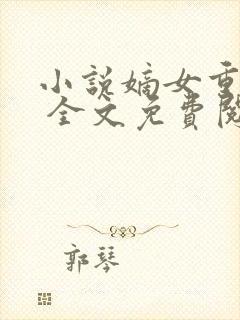 小说嫡女重
全文免費閱
郭琴